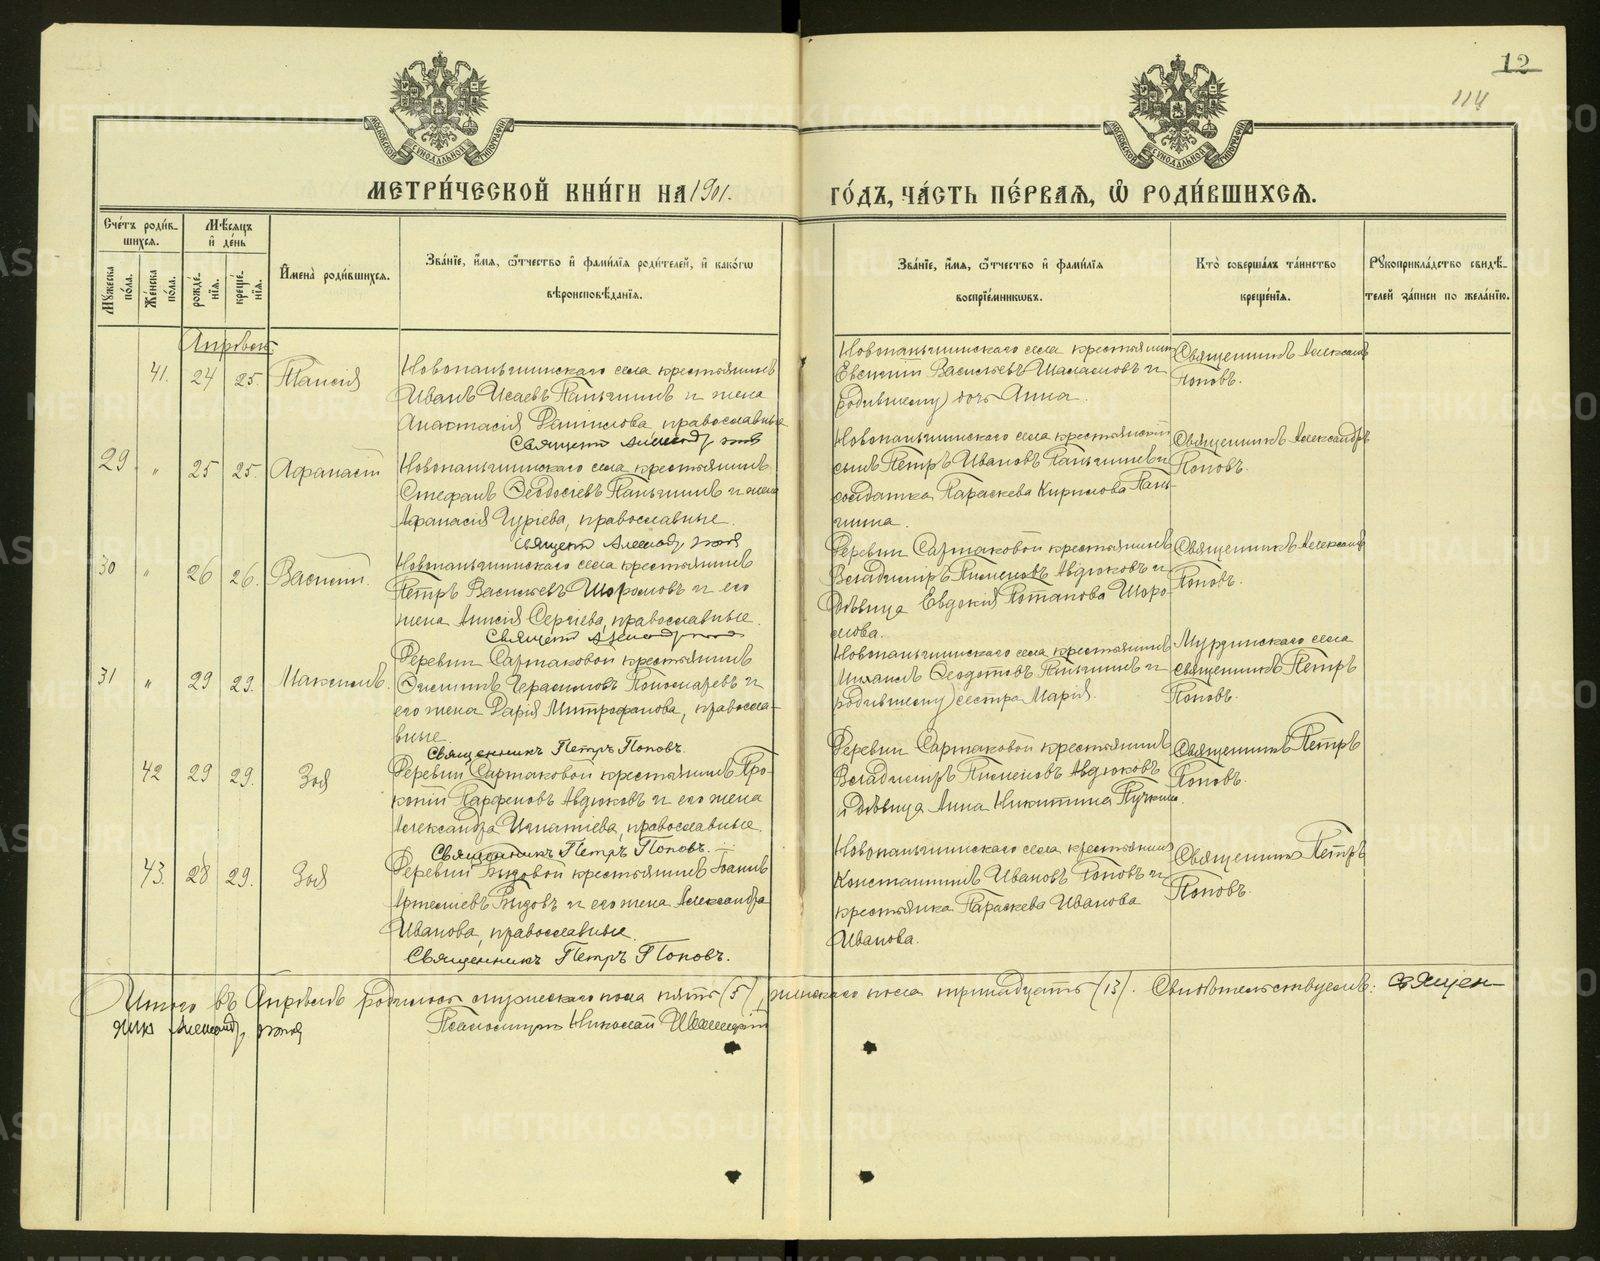 12
114
МОСКОВСКОЙ СѴНОДАЛЬНОЙ ТИПОГРАФІИ
МОСКОВСКОЙ СѴНОДАЛЬНОЙ ТИПОГРАФІИ
МЕТРИ́ЧЕСКОЙ КНИ́ГИ НА 1901.
ГО́ДЪ, ЧА́СТЬ ПЕ́РВАѦ, Ѽ РОДИ́ВШИХСѦ.
Сче́тъ роди́в-
шихсѧ.
Мꙋжеска по́ла.
Же́нска по́ла.
Мѣ́сѧцъ и҆ де́нь
рожде́-нїѧ.
креще́-нїѧ.
И҆мена̀ роди́вшихсѧ.
Зва́нїе, и҆́мѧ, ѻ҆́тчество и҆ фами́лїѧ роди́телей, и҆ како́гѡ
вѣроисповѣ́данїѧ.
Зва́нїе, и҆́мѧ, ѻ҆́тчество и҆ фами́лїѧ
воспрїе́мникѡвъ.
Кто̀ соверша́лъ та́инство
креще́нїѧ.
Рꙋкоприкла́дство свидѣ́-
телей за́писи по жела́нїю.
Апрѣль
41. 24 25. Таисія
Новопаньшинскаго села крестьянинъ
Иванъ Исаевъ Паньшинъ и жена
Анастасія Данилова, православные
Священ Александр Попов
Новопаньшинскаго села крестьянин
Евгеній Васильевъ Шаламовъ и
родившему дочь Анна.
Священникъ Александръ
Поповъ.
29 " 25 25. Афанасій
Новопаньшинскаго села крестьянинъ
Стефанъ Ѳеодосіевъ Паньшинъ и жена
Афанасія Гуріева, православные.
Священ Александр Попов
Новопаньшинскаго села крестьянскій
сынъ Петръ Ивановъ Паньшинъ и
солдатка Параскева Кирилова Пань-
шина.
Священникъ Александръ
Поповъ.
30 " 26 26. Василій.
Новопаньшинскаго села крестьянинъ
Петръ Васильевъ Шорохов и его
жена Анисія Сергіева, православные.
Священ Александр Попов
Деревни Сартаковой крестьянинъ
Владиміръ Пименовъ Авдюковъ и
дѣвица Евдокія Потапова Шоро-
хова.
Священникъ Александръ
Поповъ.
31 " 29 29. Максимъ.
Деревни Сартаковой крестьянинъ
Герасимовъ Пономаревъ и
его жена Дарія Митрофанова, правосла-
вные.
Священникъ Петръ Поповъ.
Новопаньшинскаго села крестьянинъ
Михаилъ Ѳеодотовъ Паньшинъ и
родившему сестра Марія.
Мурзинскаго села
священникъ Петръ
Поповъ.
42 29 29. Зоя
Деревни Сартаковой крестьянинъ Про-
копій Парфеновъ Авдюковъ и его жена
Александра Игнатіева, православные.
Священникъ Петръ Поповъ.
Деревни Сартаковой крестьянинъ
Владиміръ Пименовъ Авдюковъ
и дѣвица Анна Никитина Пучкина.
Священникъ Петръ
Поповъ.
43. 28 29. Зоя
Деревни Быдовой крестьянинъ Іоаннъ
Артеміевъ Быдовъ и его жена Александра
Иванова, православные.
Священникъ Петръ Поповъ.
Новопаньшинскаго села крестьянинъ
Константинъ Ивановъ Поповъ и
крестьянка Параскева Иванова
Иванова.
Священникъ Петръ
Поповъ.
Итого въ Апрѣлѣ родилось мужескаго пола пять (5), женскаго пола тринадцать (13). Свидѣтельствуемъ: Священ-
никъ Александр Попов Псаломщик Николай